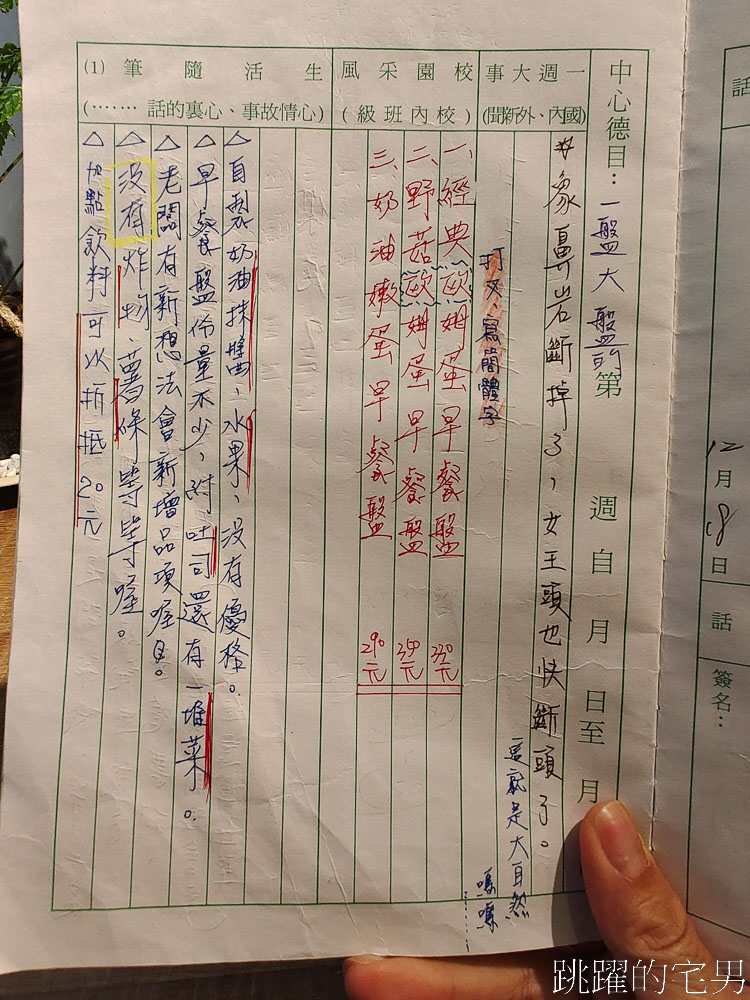 中心德目：一盤大盤的 第 週自 月 日至 月
一週大事
(國內、外新聞)
#象鼻岩斷掉了，女王頭也快斷頭了。
這就是大自然
嗚嗚……
打叉、寫簡體字
校園采風
(校內班級)
一、經典歐姆蛋早餐盤 330元
二、野菇歐姆蛋早餐盤 350元
三、奶油嫩蛋早餐盤 290元
生活隨筆 (1)
(心情故事、心裏的話……)
△自製奶油抹醬、水果、沒有優格。
△早餐盤份量不少，附吐司還有一堆菜。
△老闆有新想法會新增品項喔。
△沒有炸物、薯條等等喔。
△加點飲料可以折抵20元
話
12月18日
話
簽名：
跳躍的宅男